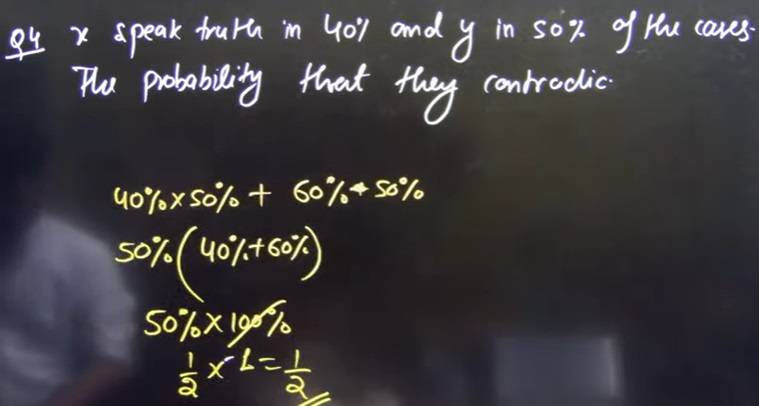 Q4 x speak truth in 40% and y in 50% of the cases.
The probability that they contradic.
40% x 50% + 60% * 50%
50% (40% + 60%)
50% x 100%
1/2 x 1 = 1/2